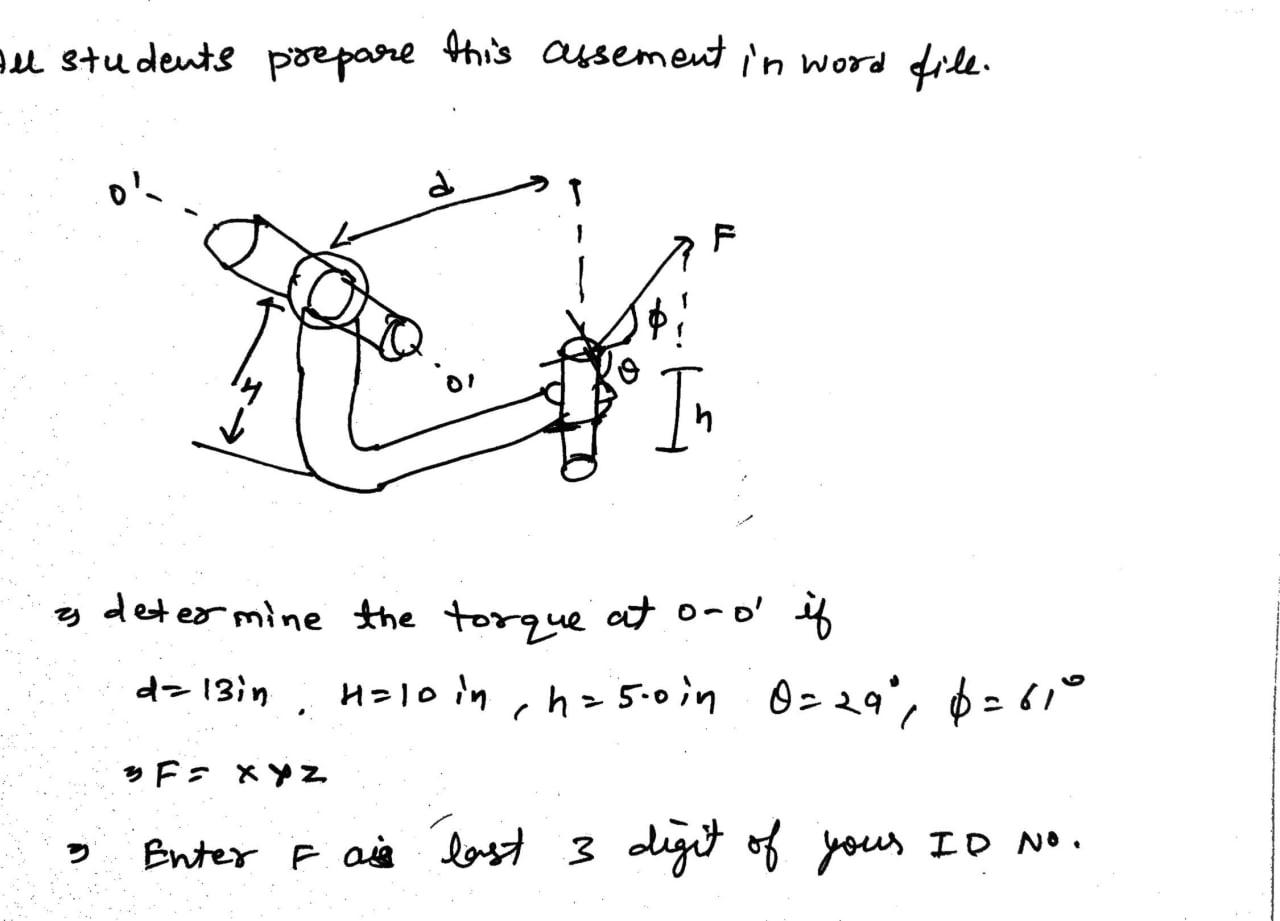 All students prepare this assement in word file.
O'
d
F
φ
θ
H
O'
h
⇒ determine the torque at O-O' if
d=13in, H=10 in, h=5.0in θ=29°, φ=61°
⇒ F = xyz
⇒ Enter F as last 3 digit of your ID No.